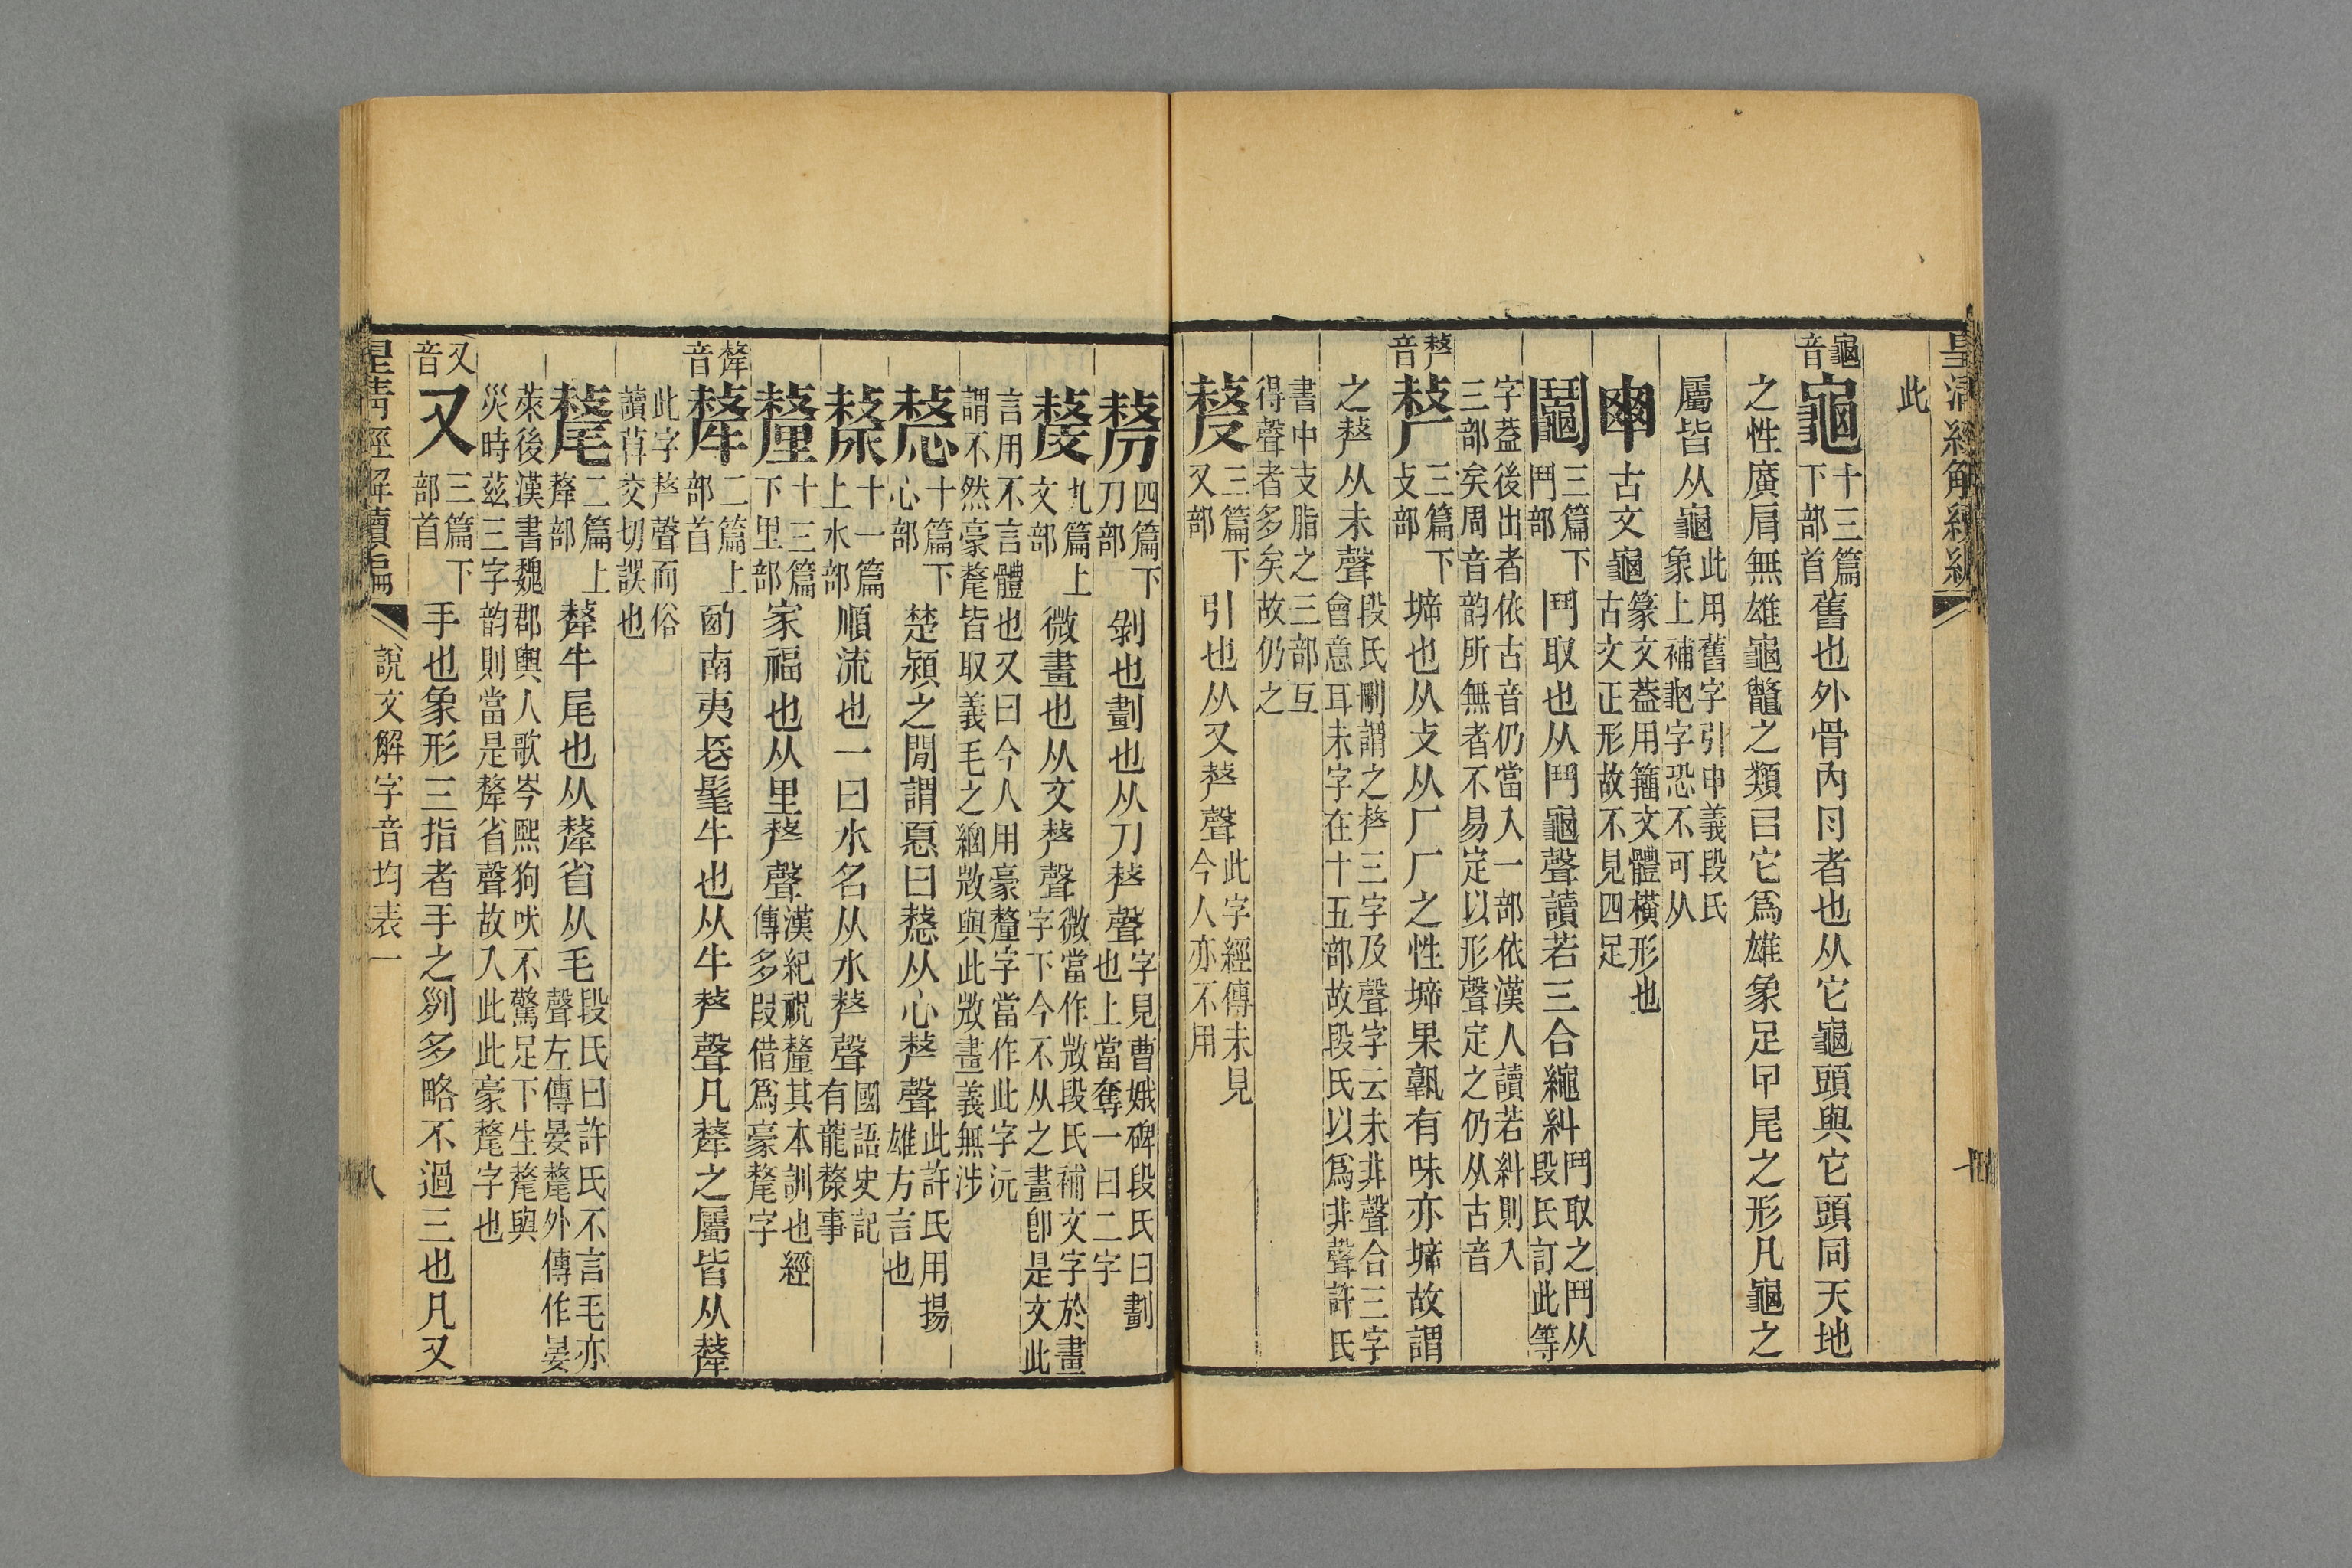 皇清經解續編
此
龜音 龜十三篇下部首 舊也外骨內冃者也从它龜頭與它頭同天地
之性廣肩無雄龜鼈之類㠯它爲雄象足甲尾之形凡龜之
屬皆从龜此用舊字引申義段氏象上補龜字恐不可从
古文龜篆文葢用籀文體橫形也古文正形故不見四足
鬮三篇下鬥部 鬥取也从鬥龜聲讀若三合繩糾鬥取之鬥从段氏訂此等
字葢後出者依古音仍當入一部依漢人讀若糾則入三部矣周音韵所無者不易定以形聲定之仍从古音
𠩺音 𠩺三篇下攴部 㙷也从攴从厂厂之性㙷果孰有味亦㙷故謂
之𠩺从未聲段氏刪謂之𠩺三字及聲字云未非聲合三字會意耳未字在十五部故段氏以爲非聲許氏
書中支脂之三部互得聲者多矣故仍之
𠭰三篇下又部 引也从又𠩺聲此字經傳未見今人亦不用
剺四篇下刀部 剝也劃也从刀𠩺聲字見曹娥碑段氏曰劃也上當奪一曰二字
嫠九篇上文部 微畫也从文𠩺聲微當作㣲段氏補文字於畫字下今不从之畫卽是文此
言用不言體也又曰今人用豪釐字當作此字沅謂不然豪氂皆取義毛之緬㣲與此㣲畫義無涉
𢤂十篇下心部 楚潁之閒謂𢝊曰𢤂从心𠩺聲此許氏用揚雄方言也
漦十一篇上水部 順流也一曰水名从水𠩺聲國語史記有龍漦事
釐十三篇下里部 家福也从里𠩺聲漢紀祝釐其本訓也經傳多叚借爲豪氂字
犛音 犛二篇上部首 西南夷長髦牛也从牛𠩺聲凡犛之屬皆从犛
此字𠩺聲而俗讀莫交切誤也
氂二篇上犛部 犛牛尾也从犛省从毛段氏曰許氏不言毛亦聲左傳晏氂外傳作晏
萊後漢書魏郡輿人歌岑熙狗吠不驚足下生氂與災時茲三字韵則當是犛省聲故入此此豪氂字也
又音 又三篇下部首 手也象形三指者手之𠛱多略不過三也凡又
皇清經解續編 說文解字音均表一 八